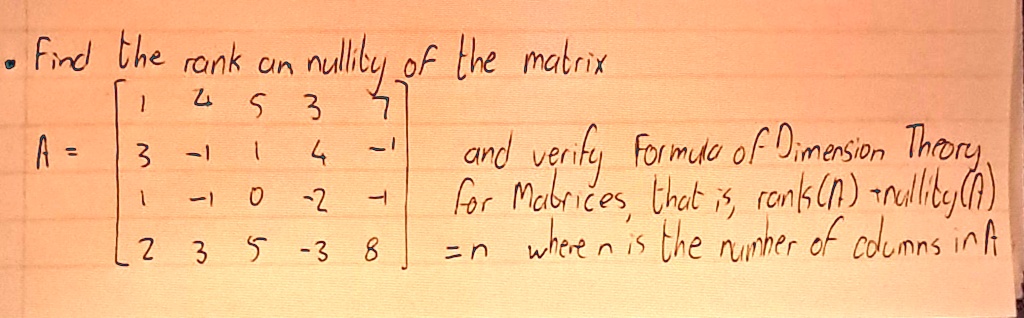 • Find the rank an nullity of the matrix
A = [ 1 4 5 3 7
3 -1 1 4 -1
1 -1 0 -2 -1
2 3 5 -3 8 ]
and verify Formula of Dimension Theory
for Matrices, that is, rank(A) + nullity(A)
= n where n is the number of columns in A